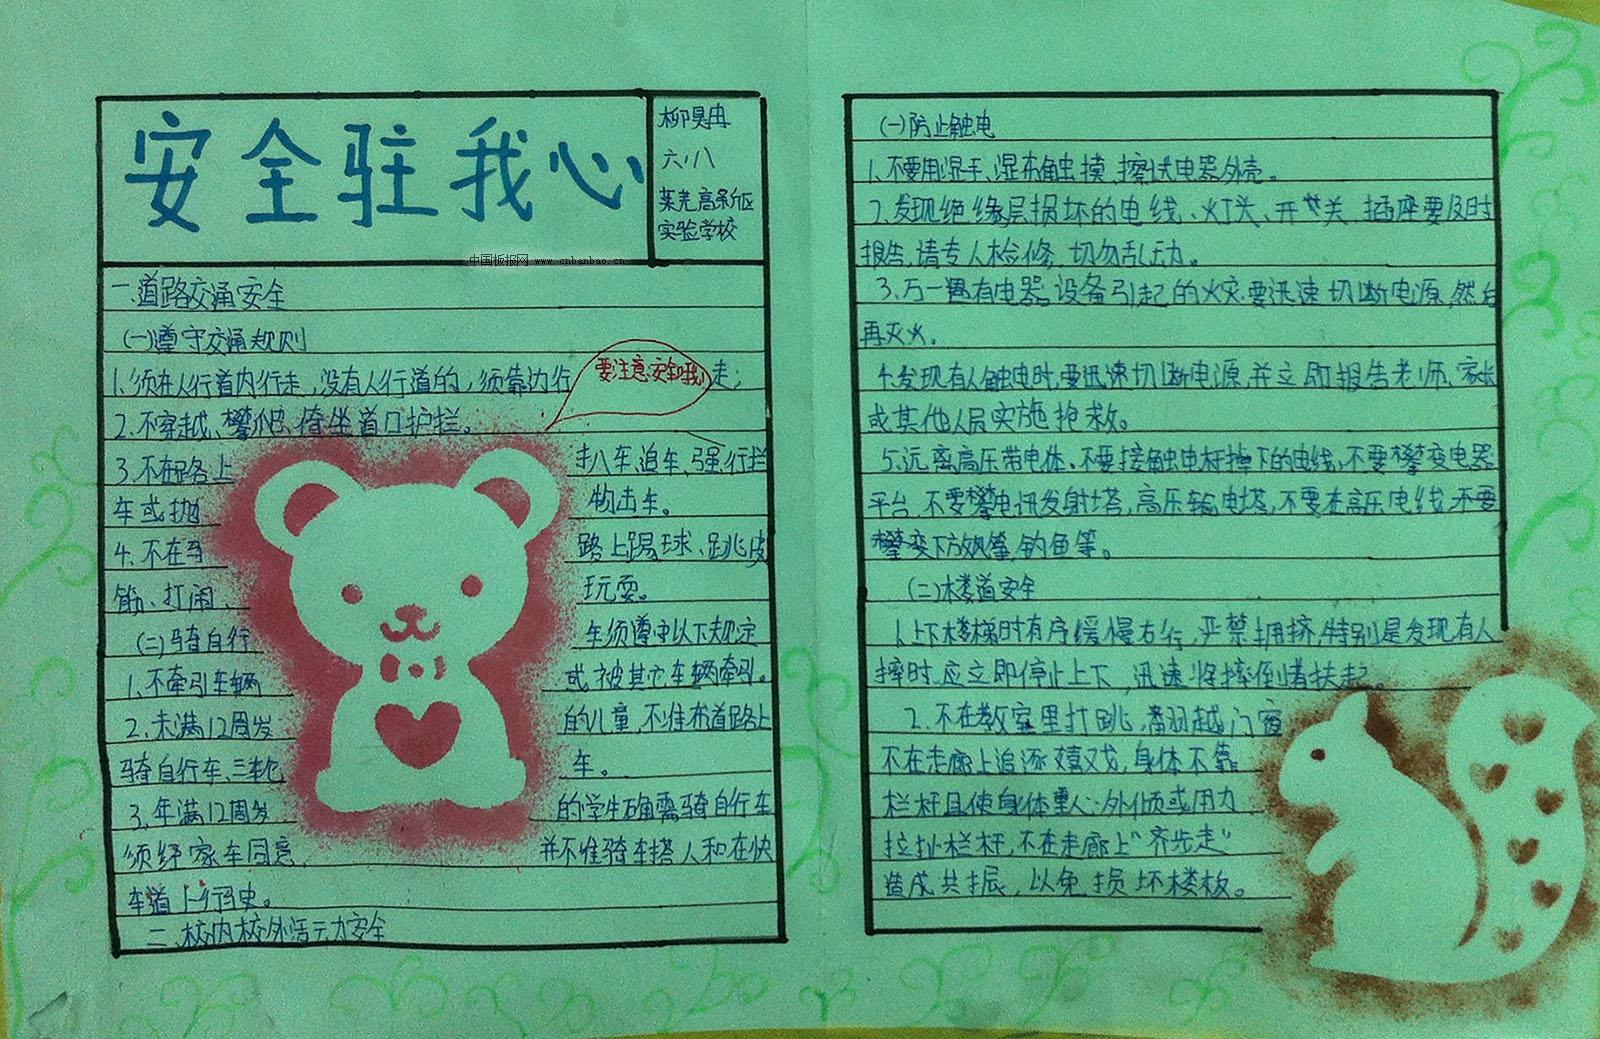 安全驻我心
柳昊冉
六·八
莱芜高新区
实验学校
中国板报网 www.cnbanbao.cn
一.道路交通安全
(一)遵守交通规则
1.须在人行道内行走,没有人行道的,须靠边行走;
要注意安全哦!
2.不穿越、攀爬、倚坐道口护栏。
3.不在路上扒车,追车,强行拦
车或抛物击车。
4.不在马路上踢球、跳皮
筋、打闹、玩耍。
(二)骑自行车须遵守以下规定
1.不牵引车辆或被其它车辆牵引。
2.未满12周岁的儿童,不准在道路上
骑自行车、三轮车。
3.年满12周岁的学生确需骑自行车
须经家车同意,并不准骑车搭人和在快
车道上行驶。
二.校内校外活动安全
(一)防止触电
1.不要用湿手、湿布触摸、擦拭电器外壳。
2.发现绝缘层损坏的电线、灯头、开关、插座要及时
报告,请专人检修,切勿乱动。
3.万一遇有电器设备引起的火灾.要迅速切断电源,然后
再灭火。
4.发现有人触电时,要迅速切断电源,并立即报告老师、家长
或其他人员实施抢救。
5.远离高压带电体.不要接触电杆掉下的电线,不要攀变电器
平台.不要攀电讯发射塔,高压输电塔,不要在高压电线,不要
攀变下放风筝,钓鱼等。
(二)楼道安全
1.上下楼梯时有序缓慢右行,严禁拥挤,特别是发现有人
摔时,应立即停止上下,迅速将摔倒者扶起。
2.不在教室里打跳,翻越门窗
不在走廊上追逐嬉戏,身体不靠
栏杆且使身体重心外倾或用力
拉扯栏杆,不在走廊上"齐步走"
造成共振,以免损坏楼板。